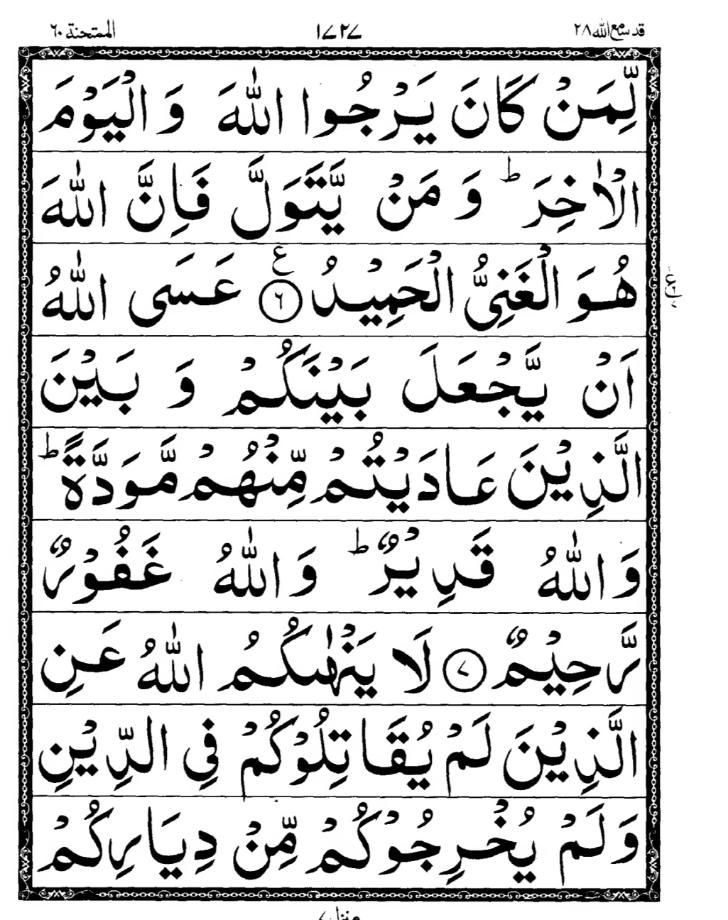 قد سمع الله ٢٨ ١٧٢٧ الممتحنة ٦٠
لِّمَنْ كَانَ يَرْجُوا اللّٰهَ وَ الْيَوْمَ
الْاٰخِرَ ؕ وَ مَنْ يَّتَوَلَّ فَاِنَّ اللّٰهَ
هُوَ الْغَنِيُّ الْحَمِيْدُ ۶ ع عَسَى اللّٰهُ
اَنْ يَّجْعَلَ بَيْنَكُمْ وَ بَيْنَ
الَّذِيْنَ عَادَيْتُمْ مِّنْهُمْ مَّوَدَّةً ؕ
وَاللّٰهُ قَدِيْرٌ ؕ وَاللّٰهُ غَفُوْرٌ
رَّحِيْمٌ ۷ لَا يَنْهٰىكُمُ اللّٰهُ عَنِ
الَّذِيْنَ لَمْ يُقَاتِلُوْكُمْ فِي الدِّيْنِ
وَلَمْ يُخْرِجُوْكُمْ مِّنْ دِيَارِكُمْ
منزل ۷